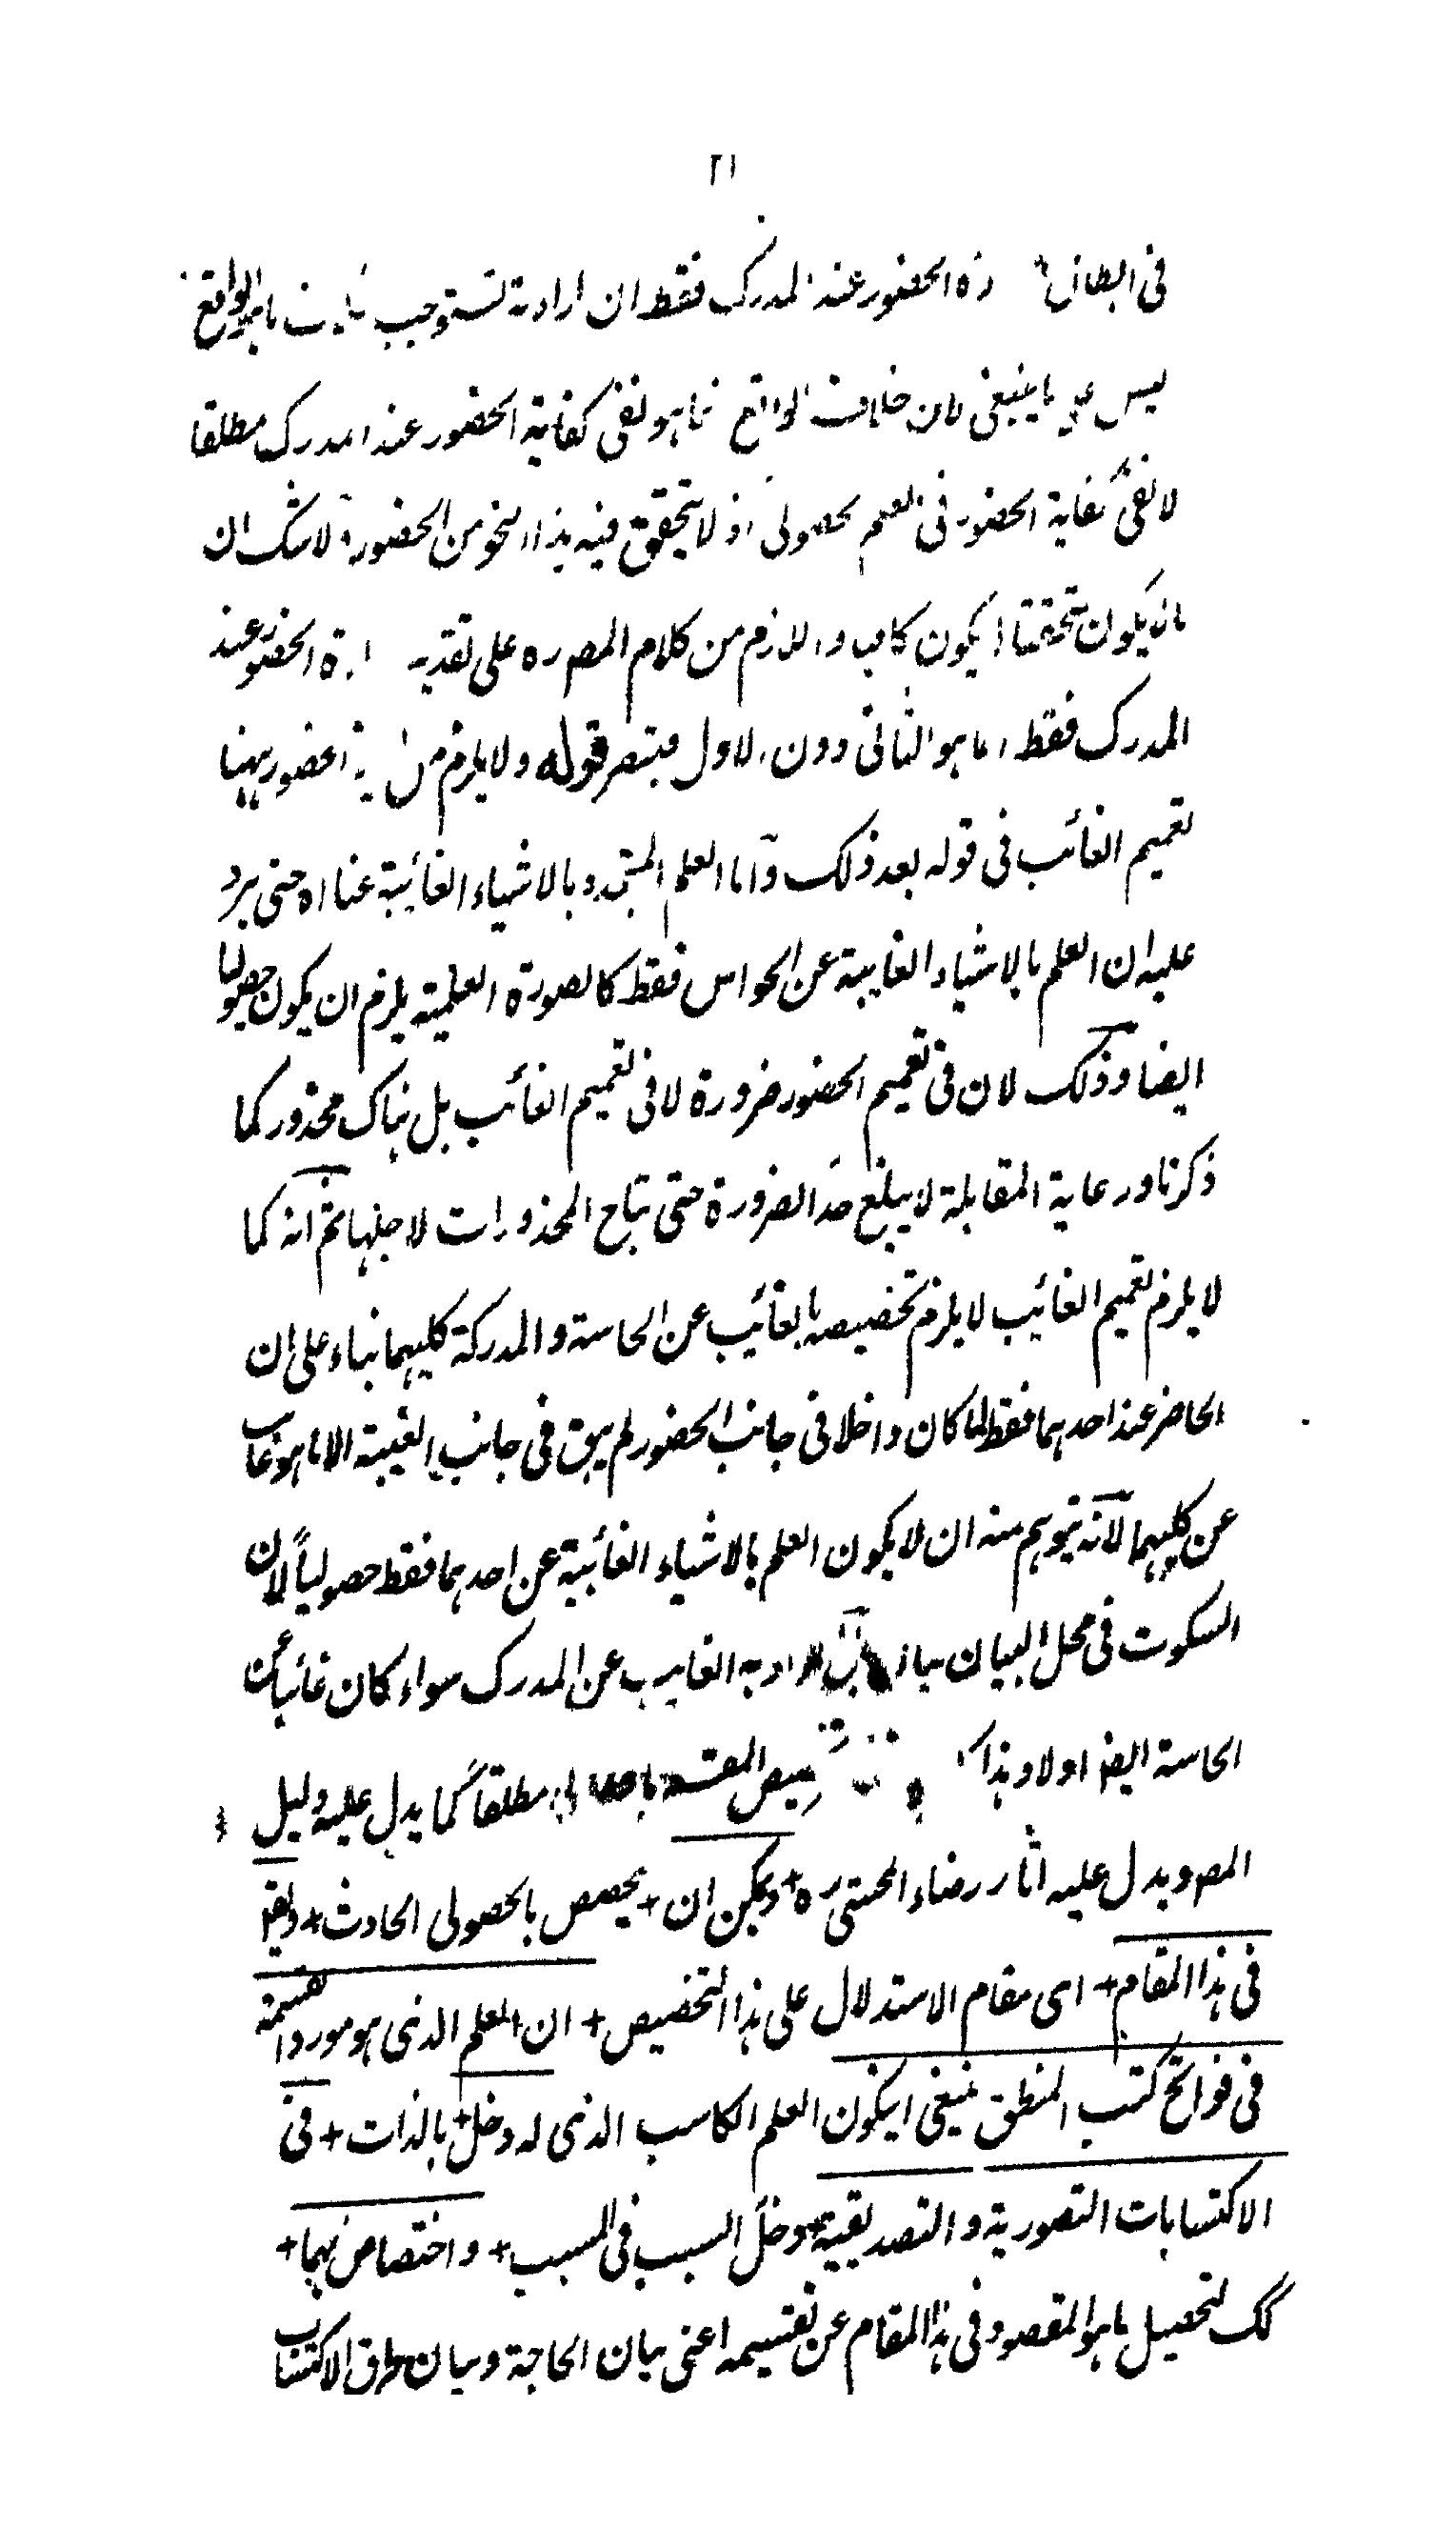 ٢١
فى البطلان الحضور عند المدرك فقط ان ارادته تستوجب الواقع
ليس على ما ينبغى لان خلاف الواقع انما هو نفى كفاية الحضور عند المدرك مطلقا
لا نفى كفاية الحضور فى العلم الحصولى اذ لا يتحقق فيه هذا النحو من الحضور ولا شك ان
يكون متحققا يكون كافيا واللازم من كلام المصره على تقدير ارادة الحضور عند
المدرك فقط انما هو الثانى دون الاول فتبصر قوله ولا يلزم من الحضور ههنا
تعميم الغائب فى قوله بعد ذلك واما العلم المتجدد بالاشياء الغائبة عنا اه حتى يرد
عليه ان العلم بالاشياء الغايبة عن الحواس فقط كالصورة العلمية يلزم ان يكون حصوليا
ايضا وذلك لان فى تعميم الحضور ضرورة لا فى تعميم الغائب بل هناك محذور كما
ذكرنا ورعاية المقابلة لا يبلغ حد الضرورة حتى تباح المحذورات لاجلها ثم انه كما
لا يلزم تعميم الغائب لا يلزم تخصيصه بالغائب عن الحاسة والمدركة كليهما بناء على ان
الحاضر عند احدهما فقط لما كان داخلا فى جانب الحضور لم يبق فى جانب الغيبة الا ما هو غائب
عن كليهما لانه يتوهم منه ان لا يكون العلم بالاشياء الغائبة عن احدهما فقط حصولياً لان
السكوت فى محل البيان بيان بل اراد به الغايب عن المدرك سواء كان غائبا عن
الحاسة ايضا اولا وهذا المقسم مطلقا كما يدل عليه دليل
المصر ويدل عليه اشار رضاء المحشى ره + ويمكن ان + يخصص بالحصولى الحادث + وايضا
فى هذا المقام + اى مقام الاستدلال على هذا التخصيص + ان العلم الذى هو مورد القسمة
فى فواتح كتب المنطق ينبغى ان يكون العلم الكاسب الذى له دخل + بالذات + فى
الاكتسابات التصورية والتصديقية + دخل السبب فى المسبب + واختصاص بهما +
كك لتحصيل ما هو المقصود فى هذا المقام عن تقسيمه اعنى بيان الحاجة وبيان طرق الاكتساب